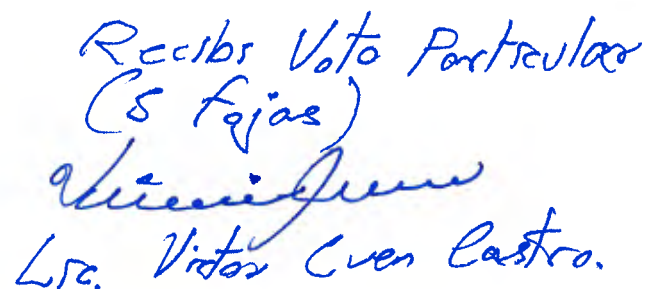 Recibi Voto Particular
(5 fojas)
Lic. Victor Cuen Castro.